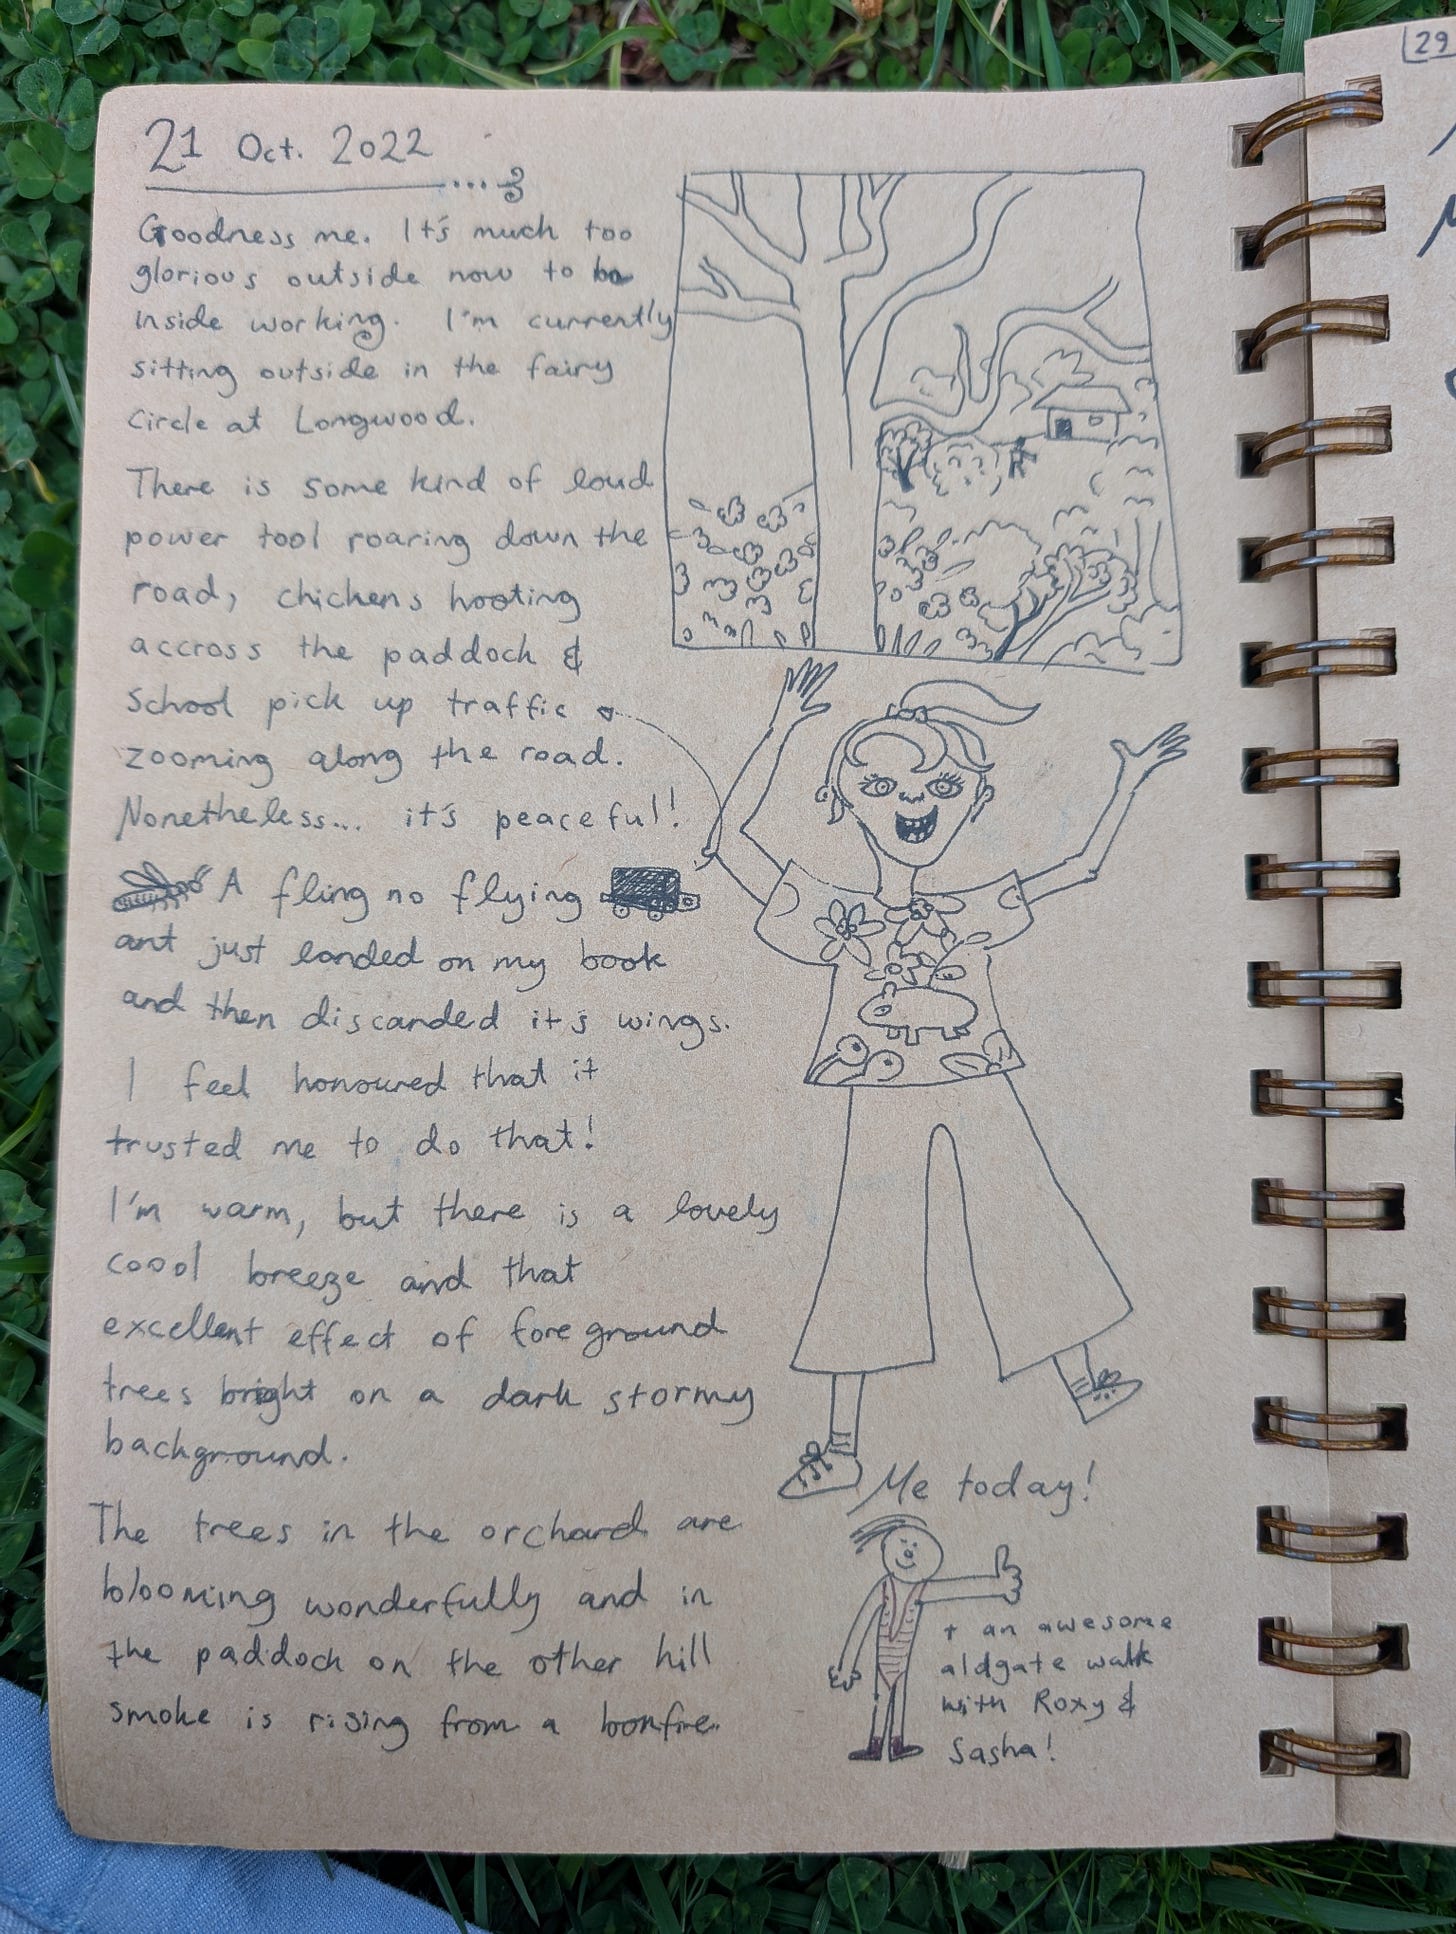 21 Oct. 2022
Goodness me. It's much too
glorious outside now to be
inside working. I'm currently
sitting outside in the fairy
circle at Longwood.
There is some kind of loud
power tool roaring down the
road, chickens hooting
accross the paddock &
school pick up traffic
zooming along the road.
Nonetheless... it's peaceful!
A fling no flying
ant just landed on my book
and then discanded it's wings.
I feel honoured that it
trusted me to do that!
I'm warm, but there is a lovely
coool breeze and that
excellent effect of foreground
trees bright on a dark stormy
background.
The trees in the orchard are
blooming wonderfully and in
the paddock on the other hill
smoke is rising from a bonfire.
Me today!
+ an awesome
aldgate walk
with Roxy &
Sasha!
29